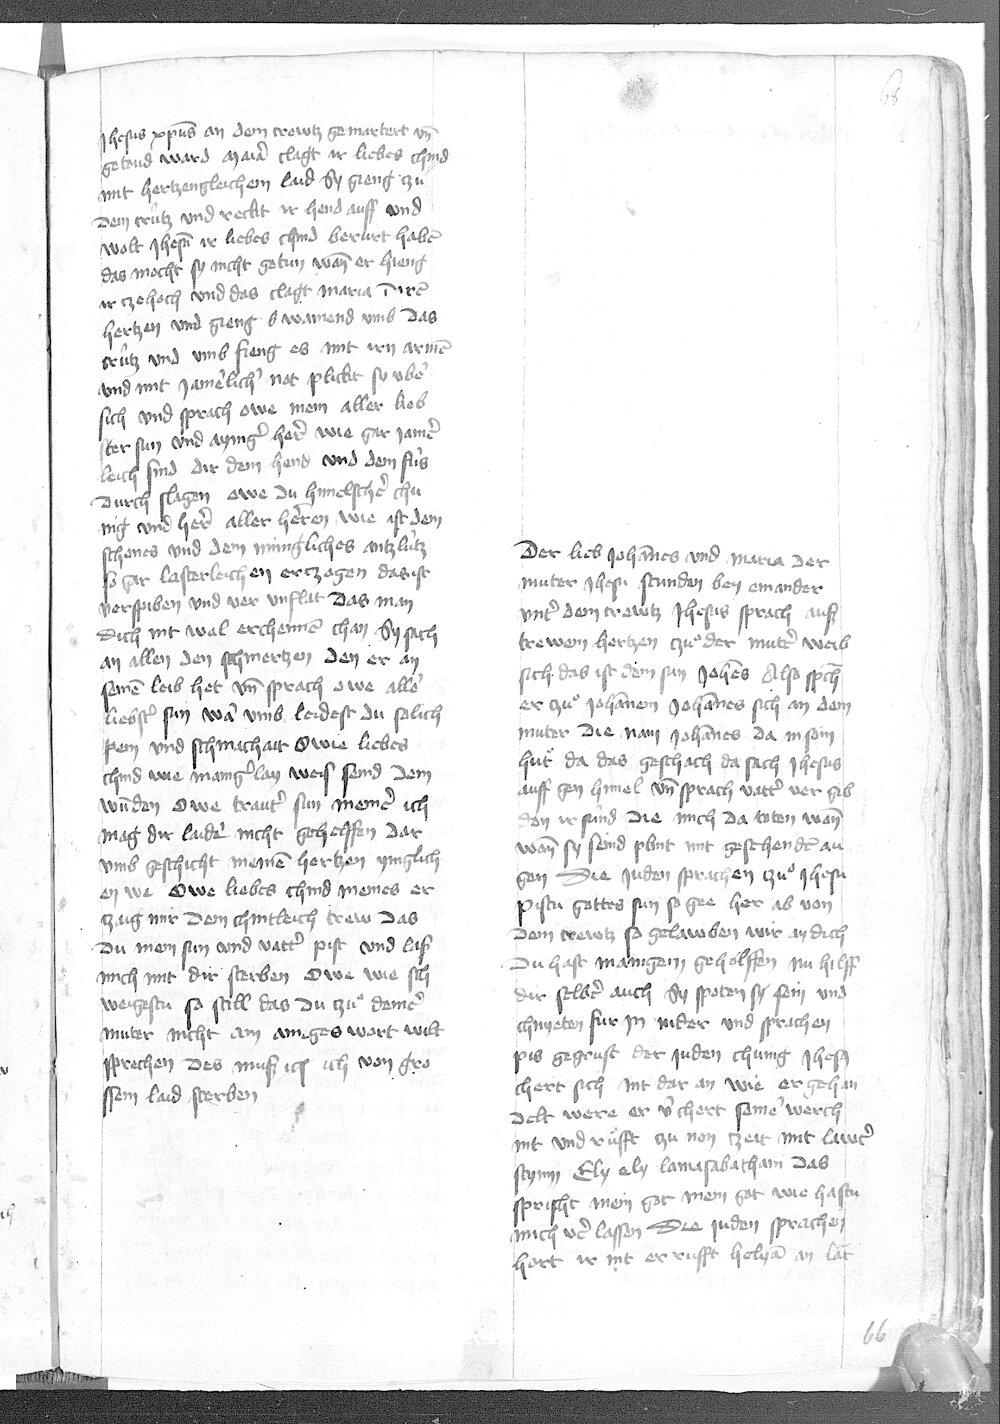 68
Jhesus xp̄us an dem crewtz gemartert vn̄
getoud ward Maria clagt ir liebes chind
mit hertzengleichem laid Sy gieng czu
dem crütz vnd reckt ir hend auff vnd
wolt Jhesū ir liebes chind berürt habē
das mocht sy nicht getun wan̄ er hieng
ir cze hoch vnd das clagt maria in irē
hertzen vnd gieng b wainend vmb das
crütz vnd vmb fieng es mit irn armē
vnd mit Jam̄lich̄ not plickt sy vber
sich vnd sprach owe mein aller lieb
ster sun vnd ayniḡ her̄ wie gar Jamer
leich sind dir dein hend vnd dein füs
durch slagen owe du himelscher chu
nig vnd her̄ aller herren wie ist dein
schones vnd dein minigliches antzlütz
so gar lasterleichen erczogen das ist
verspiben vnd ver vnflat Das man
dich nit wol erchennē chan Sy sach
an allen den schmertzen den er an
seinē leib het vn̄ sprach owe aller
liebster sun war vmb leidest du solich
pein vnd schmachait Owie liebes
chind wie mainger lay weis seind dein
wūnden Owe trauter sun meiner ich
mag dir laider nicht gehelffen Dar
vmb geschicht meinē hertzen ynglich
en we Owe liebes chind meines er
czaig mir dem chintleich trew Das
du mein sun vnd vatter pist vnd las
mich mit dir sterben Owe wie sch
weigestu so still das du czu deiner
muter nicht ain ainiges wort wilt
sprechen Des mus ich ich von gro
ssem laid sterben
Der lieb Johānes vnd maria der
muter Jhesu stunden bey einander
vnter dem crewtz Jhesus sprach aus
trewem hertzen czu der muter weib
sich das ist dein sun Johēs Also spch̄
er czu Johānem Johānes sich an dein
muter Die nam Johānes da in sein
hüt da das geschach da sach Jhesus
auff gen himel vn̄ sprach vatter ver gib
den ir sünd die mich da toten wan̄
wan̄ sy seind plint mit gesehendē au
gen Die Juden sprachen czu Jhesu
pistu gottes sun so gee her ab von
dem crewtz so gelawben wir an dich
Du hast maingem geholffen nu hilff
dir selber auch Sy spoten sy sein vnd
chnyeten fur In nider vnd sprachen
pis gegrust der Juden chunig Jhesus
chert sich nit dar an wie er gehan
delt were er v̄chert seiner werch
nit vnd rüfft czu non czeit mit lawter
stymm Ely ely lamasabathani Das
spricht mein got mein got wie hastu
mich v̄lassen Die Juden sprachen
hort ir nit er rufft helyā an lat
66